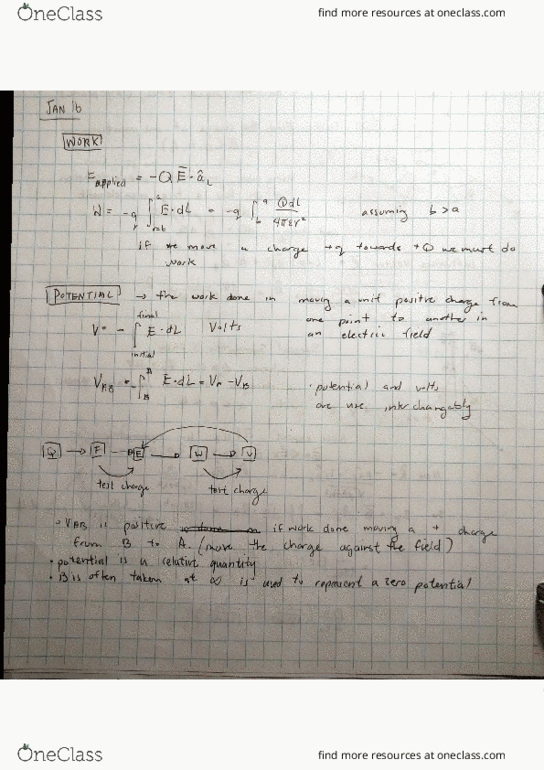 OneClass
find more resources at oneclass.com
JAN 16
WORK
F applied = -Q Ē · â L
W = -q ∫ Ē · dL = -q ∫ b a QdL / 4πεr² assuming b > a
if we move a charge +q towards +Q we must do
work
POTENTIAL → the work done in moving a unit positive charge from
one point to another in
an electric field
V = - ∫ initial final E · dL Volts
V AB = - ∫ B A Ē · dL = V A - V B
· potential and volts
are use interchangably
Q → F → E → W → V
test charge test charge
· V AB is positive if work done moving a + charge
from B to A. (move the charge against the field)
· potential is a relative quantity
· B is often taken at ∞ is used to represent a zero potential
OneClass
find more resources at oneclass.com